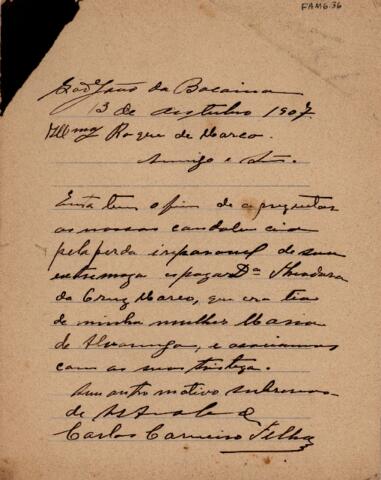 FAMG.36
S. João da Bocaina
13 de outubro 1907.
Illmo Roque de Marco.
Amigo e Snr.
Esta tem o fim de apresentar
as nossas condolencias
pela perda irreparavel de sua
extremoza espoza Da Theodora
da Cruz Marco, que era tia
de minha mulher Maria
de Alvarenga, e associamos
com as suas tristeza.
Sem outro motivo subscrevo-
de
Carlos Carneiro Filho